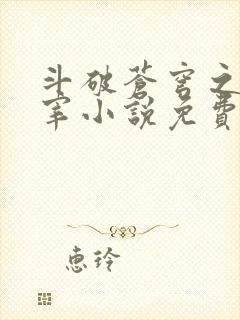 斗破苍穹之
宰小說免費
惠玲